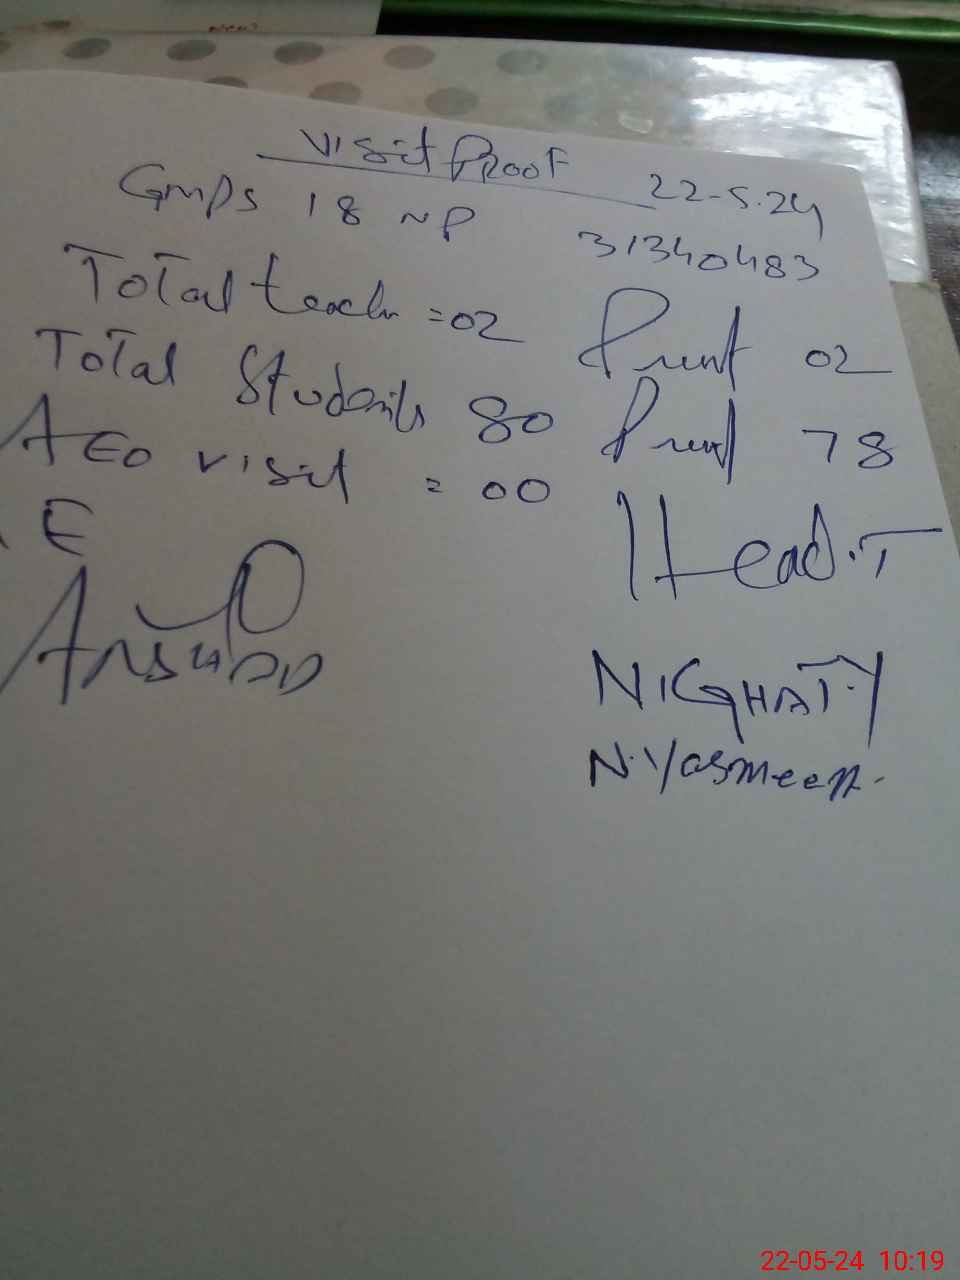 Visit Proof
22-5.24
GMPS 18 NP
31340483
Total teach = 02 Prent 02
Total Students 80 Prent 78
AEO visit = 00
E
Head.T
NIGHAT.Y
N.Yasmeen.
22-05-24 10:19